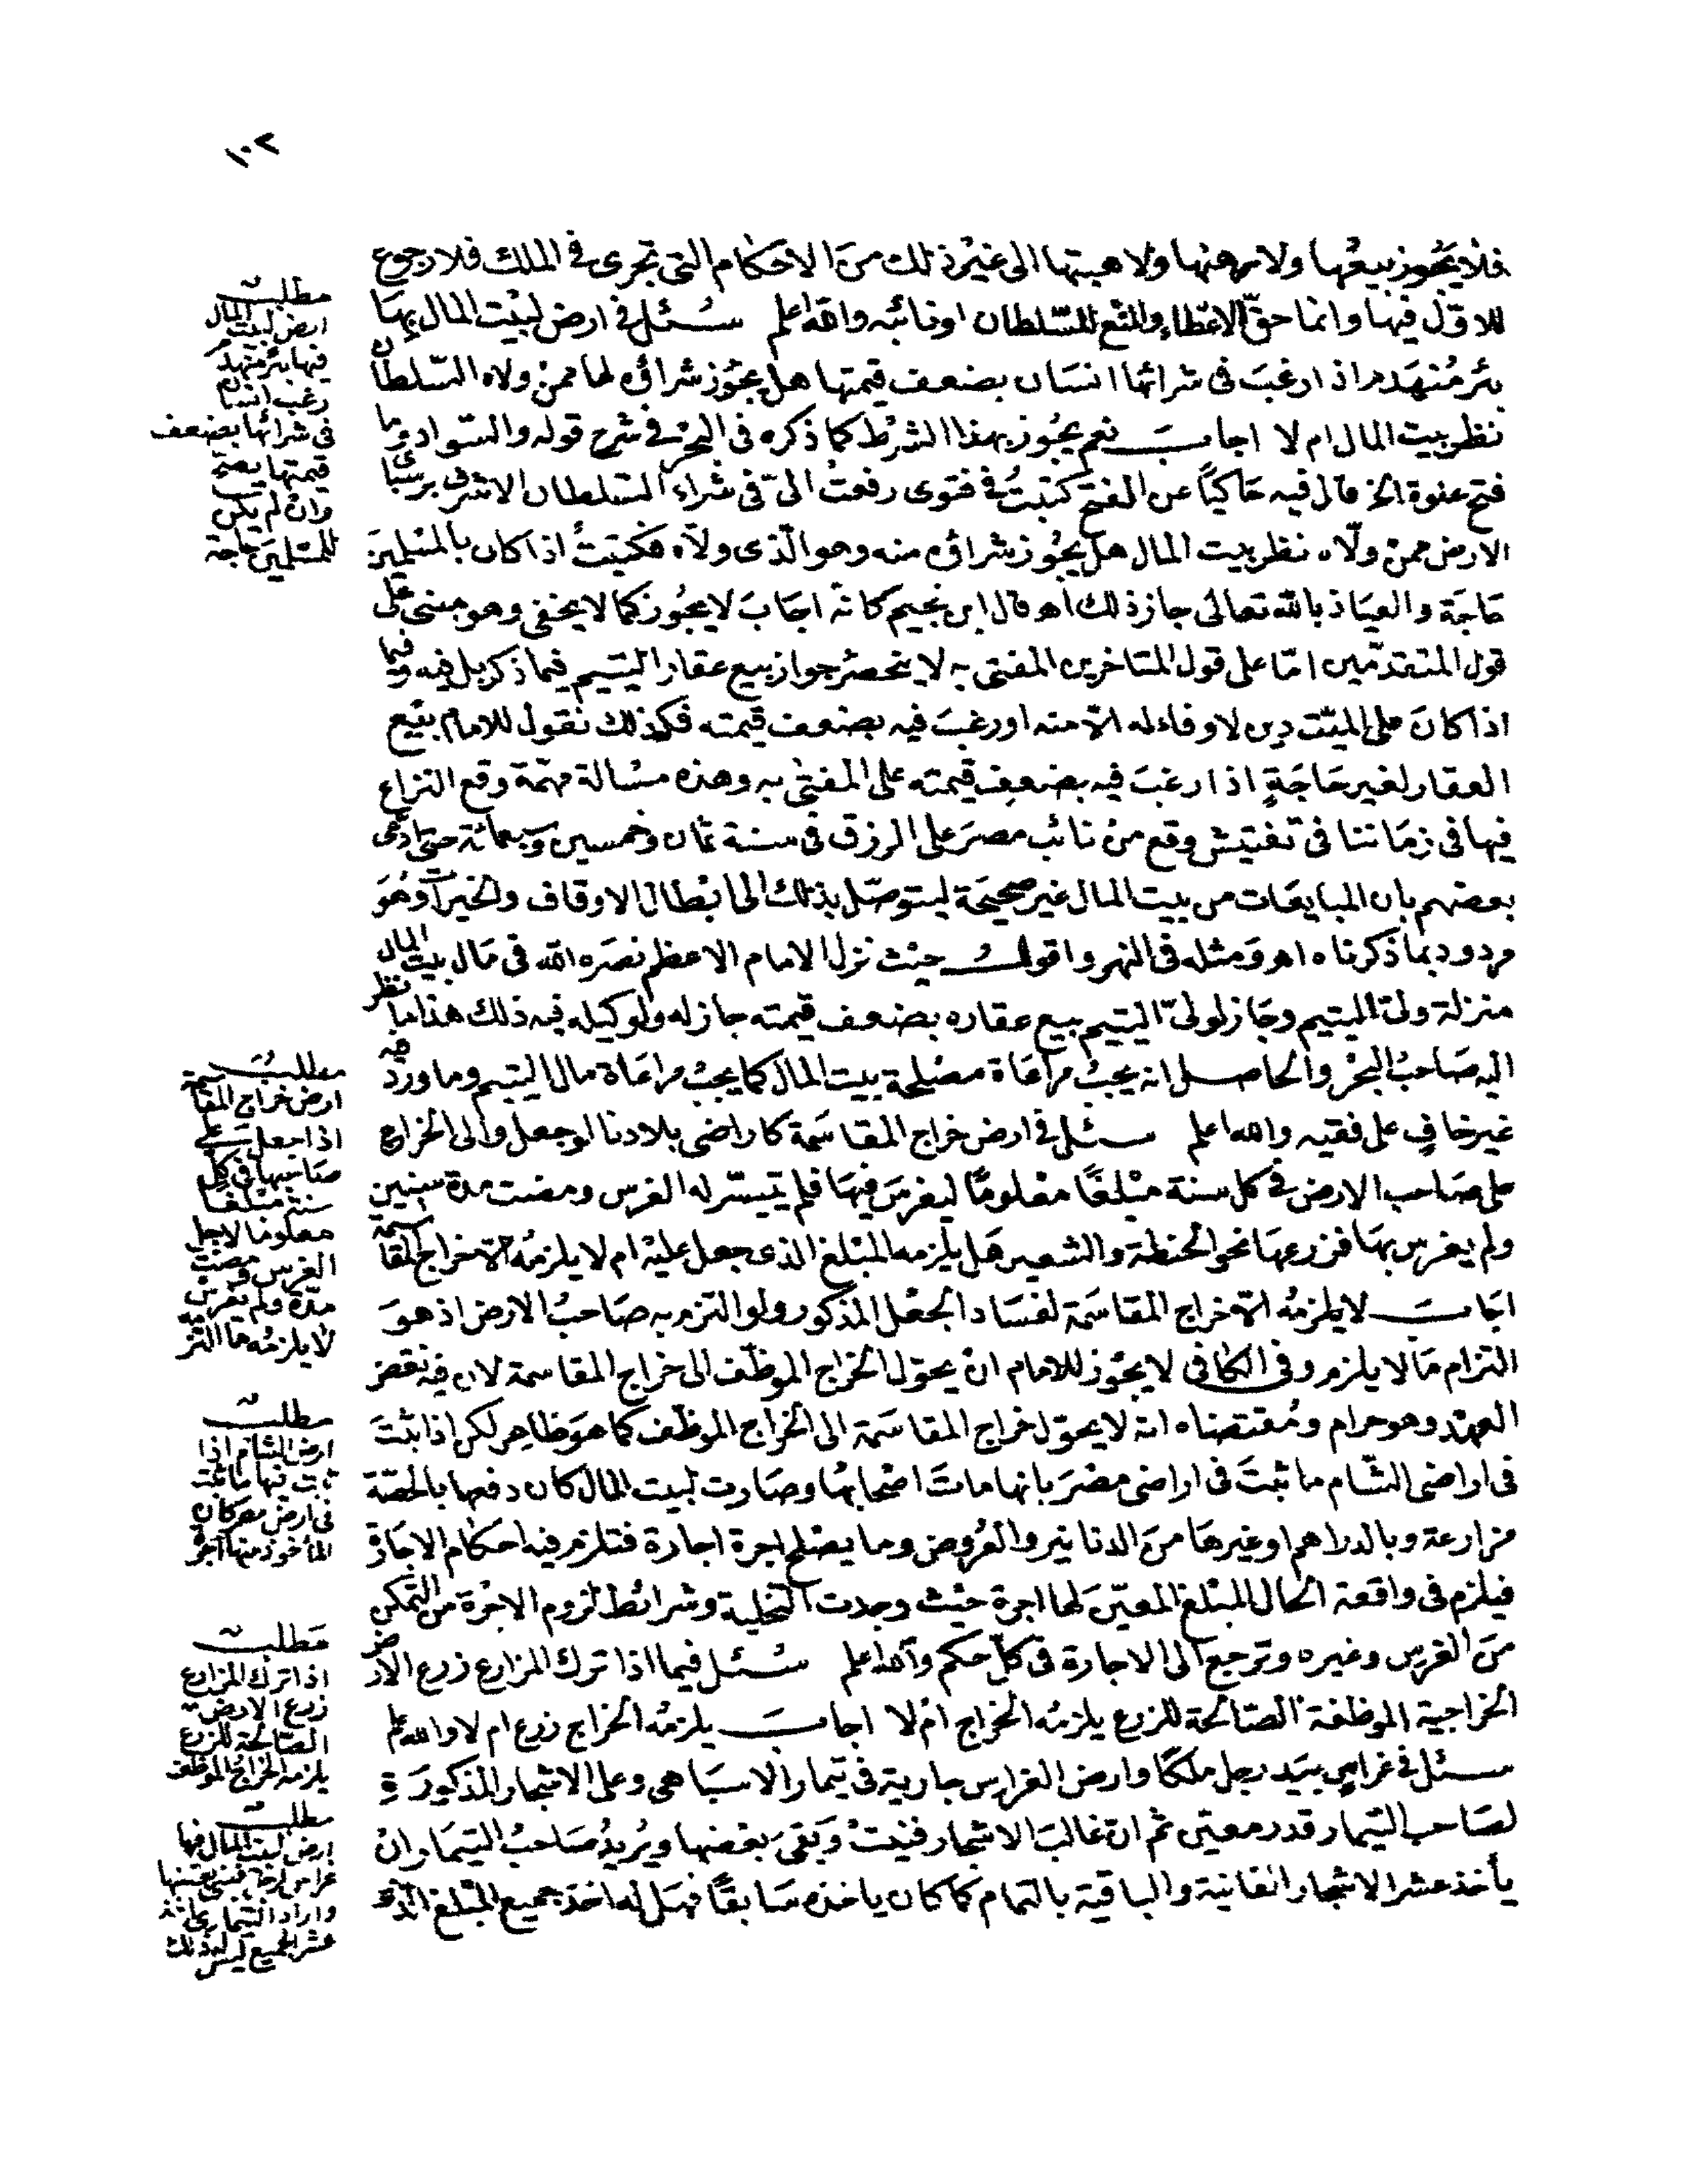 ١٠٢
فلا يجوز بيعها ولا رهنها ولا هبتها الى غير ذلك من الاحكام التى تجرى فى الملك فلا رجوع
للاول فيها وانما حق الاعطاء والمنع للسلطان او نائبه والله اعلم سئل فى ارض لبيت المال بها
بئر منهدم اذا رغب فى شرائها انسان بضعف قيمتها هل يجوز شراؤه لها ممن ولاه السلطان
نظر بيت المال ام لا اجاب نعم يجوز بهذا الشرط كما ذكره فى البحر فى شرح قوله والسواد وما
فتح عنوة الخ قال فيه حاكيا عن الفتح كتبت فى فتوى رفعت الى فى شراء السلطان الاشرف برسباى
الارض ممن ولاه نظر بيت المال هل يجوز شراؤه منه وهو الذى ولاه فكتبت اذا كان بالمسلمين
حاجة والعياذ بالله تعالى جاز ذلك اه قال ابن نجيم كانه اجاب لا يجوز كما لا يخفى وهو مبنى على
قول المتقدمين اما على قول المتاخرين المفتى به لا ينحصر جواز بيع عقار اليتيم فيما ذكر بل فيه وفيما
اذا كان على الميت دين لا وفاء له الا منه او رغب فيه بضعف قيمته فكذلك نقول للامام بيع
العقار لغير حاجة اذا رغب فيه بضعف قيمته على المفتى به وهذه مسالة مهمة وقع النزاع
فيها فى زماننا فى تفتيش وقع من نائب مصر على الرزق فى سنة ثمان وخمسين وتسعمائة حتى ادعى
بعضهم بان المبايعات من بيت المال غير صحيحة ليتوصل بذلك الى ابطال الاوقاف والخيرات وهو
مردود بما ذكرناه اه ومثله فى النهر واقول حيث نزل الامام الاعظم نصره الله فى مال بيت المال
منزلة ولى اليتيم وجاز لولى اليتيم بيع عقاره بضعف قيمته جاز له ولوكيله فيه ذلك هذا ما نظر
اليه صاحب البحر والحاصل انه يجب مراعاة مصلحة بيت المال كما يجب مراعاة مال اليتيم وما ورد فيه
غير خاف على فقيه والله اعلم سئل فى ارض خراج المقاسمة كاراضى بلادنا لو جعل والى الخراج
على صاحب الارض فى كل سنة مبلغا معلوما ليغرس فيها فلم يتيسر له الغرس ومضت مدة سنين
ولم يغرس بها فزرعها نحو الحنطة والشعير هل يلزمه المبلغ الذى جعل عليه ام لا يلزمه الا خراج المقاسمة
اجاب لا يلزمه الا خراج المقاسمة لفساد الجعل المذكور ولو التزم به صاحب الارض اذ هو
التزام ما لا يلزم وفى الكافى لا يجوز للامام ان يحول الخراج الموظف الى خراج المقاسمة لان فيه نقض
العهد وهو حرام ومقتضاه انه لا يحول خراج المقاسمة الى الخراج الموظف كما هو ظاهر لكن اذا ثبت
فى اراضى الشام ما ثبت فى اراضى مصر بانها مات اصحابها وصارت لبيت المال كان دفعها بالحصة
مزارعة وبالدراهم او غيرها من الدنانير والعروض وما يصلح اجرة اجارة فتلزم فيه احكام الاجارة
فيلزم فى واقعة الحال المبلغ المعين لها اجرة حيث وجدت التخلية وشرائط لزوم الاجرة من التمكن
من الغرس وغيره وترجع الى الاجارة فى كل حكم والله اعلم سئل فيما اذا ترك المزارع زرع الارض
الخراجية الموظفة الصالحة للزرع يلزمه الخراج ام لا اجاب يلزمه الخراج زرع ام لا والله اعلم
سئل فى غراس بيد رجل ملكا وارض الغراس جارية فى تيمار الاسباهى وعلى الاشجار المذكورة
لصاحب التيمار قدر معين ثم ان غالب الاشجار فنيت وبقى بعضها ويريد صاحب التيمار ان
يأخذ عشر الاشجار الفانية والباقية بالتمام كما كان ياخذه سابقا فهل له اخذ جميع المبلغ الذى
مطلب
ارض لبيت المال
فيها بئر منهدم
رغب انسان
فى شرائها بضعف
قيمتها يصح
وان لم يكن
للمسلمين حاجة
مطلب
ارض خراج المقاسمة
اذا جعل على
صاحبها فى كل
سنة مبلغا
معلوما لاجل
الغرس ومضت
مدة ولم يغرس
لا يلزمه
مطلب
ارض الشام اذا
ثبت فيها ما ثبت
فى ارض مصر كان
المأخوذ منها اجرة
مطلب
اذا ترك المزارع
زرع الارض
الصالحة للزرع
يلزمه الخراج الموظف
مطلب
ارض لبيت المال فيها
غراس لرجل فنى بعضها
واراد التيمارى اخذ
عشر الجميع ليس له ذلك